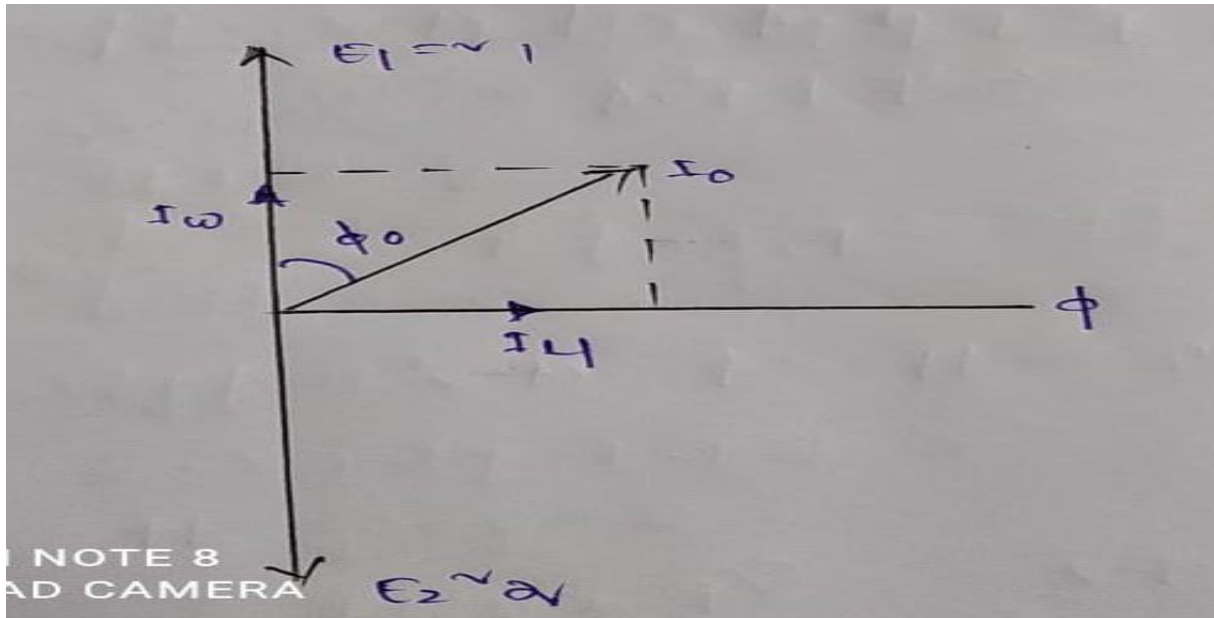 E1 = ~ 1
I0
Iω
ϕ0
ϕ
I4
I NOTE 8
AD CAMERA
E2 ~ 2